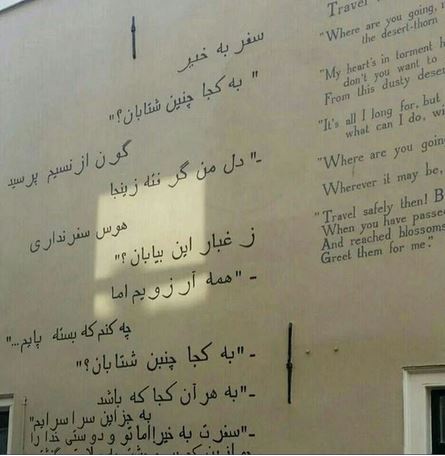 سفر به خیر
" به کجا چنین شتابان؟"
گون از نسیم پرسید
-" دل من گر فته زینجا
هوس سفرنداری
ز غبار این بیابان؟"
- "همه آر زویم اما
چه کنم که بسته پایم..."
-"به کجا چنین شتابان؟"
-"به هر آن کجا که باشد
به جزاین سرا سرایم"
-"سفرت به خیر!اما تو و دوستی خدا را
Travel
"Where are you going,
the desert-thorn
"My heart's in torment h
don't you want to
From this dusty deser
"It's all I long for, but
what can I do, wi
"Where are you goin
Wherever it may be,
"Travel safely then! B
When you have passe
And reached blossoms
Greet them for me."